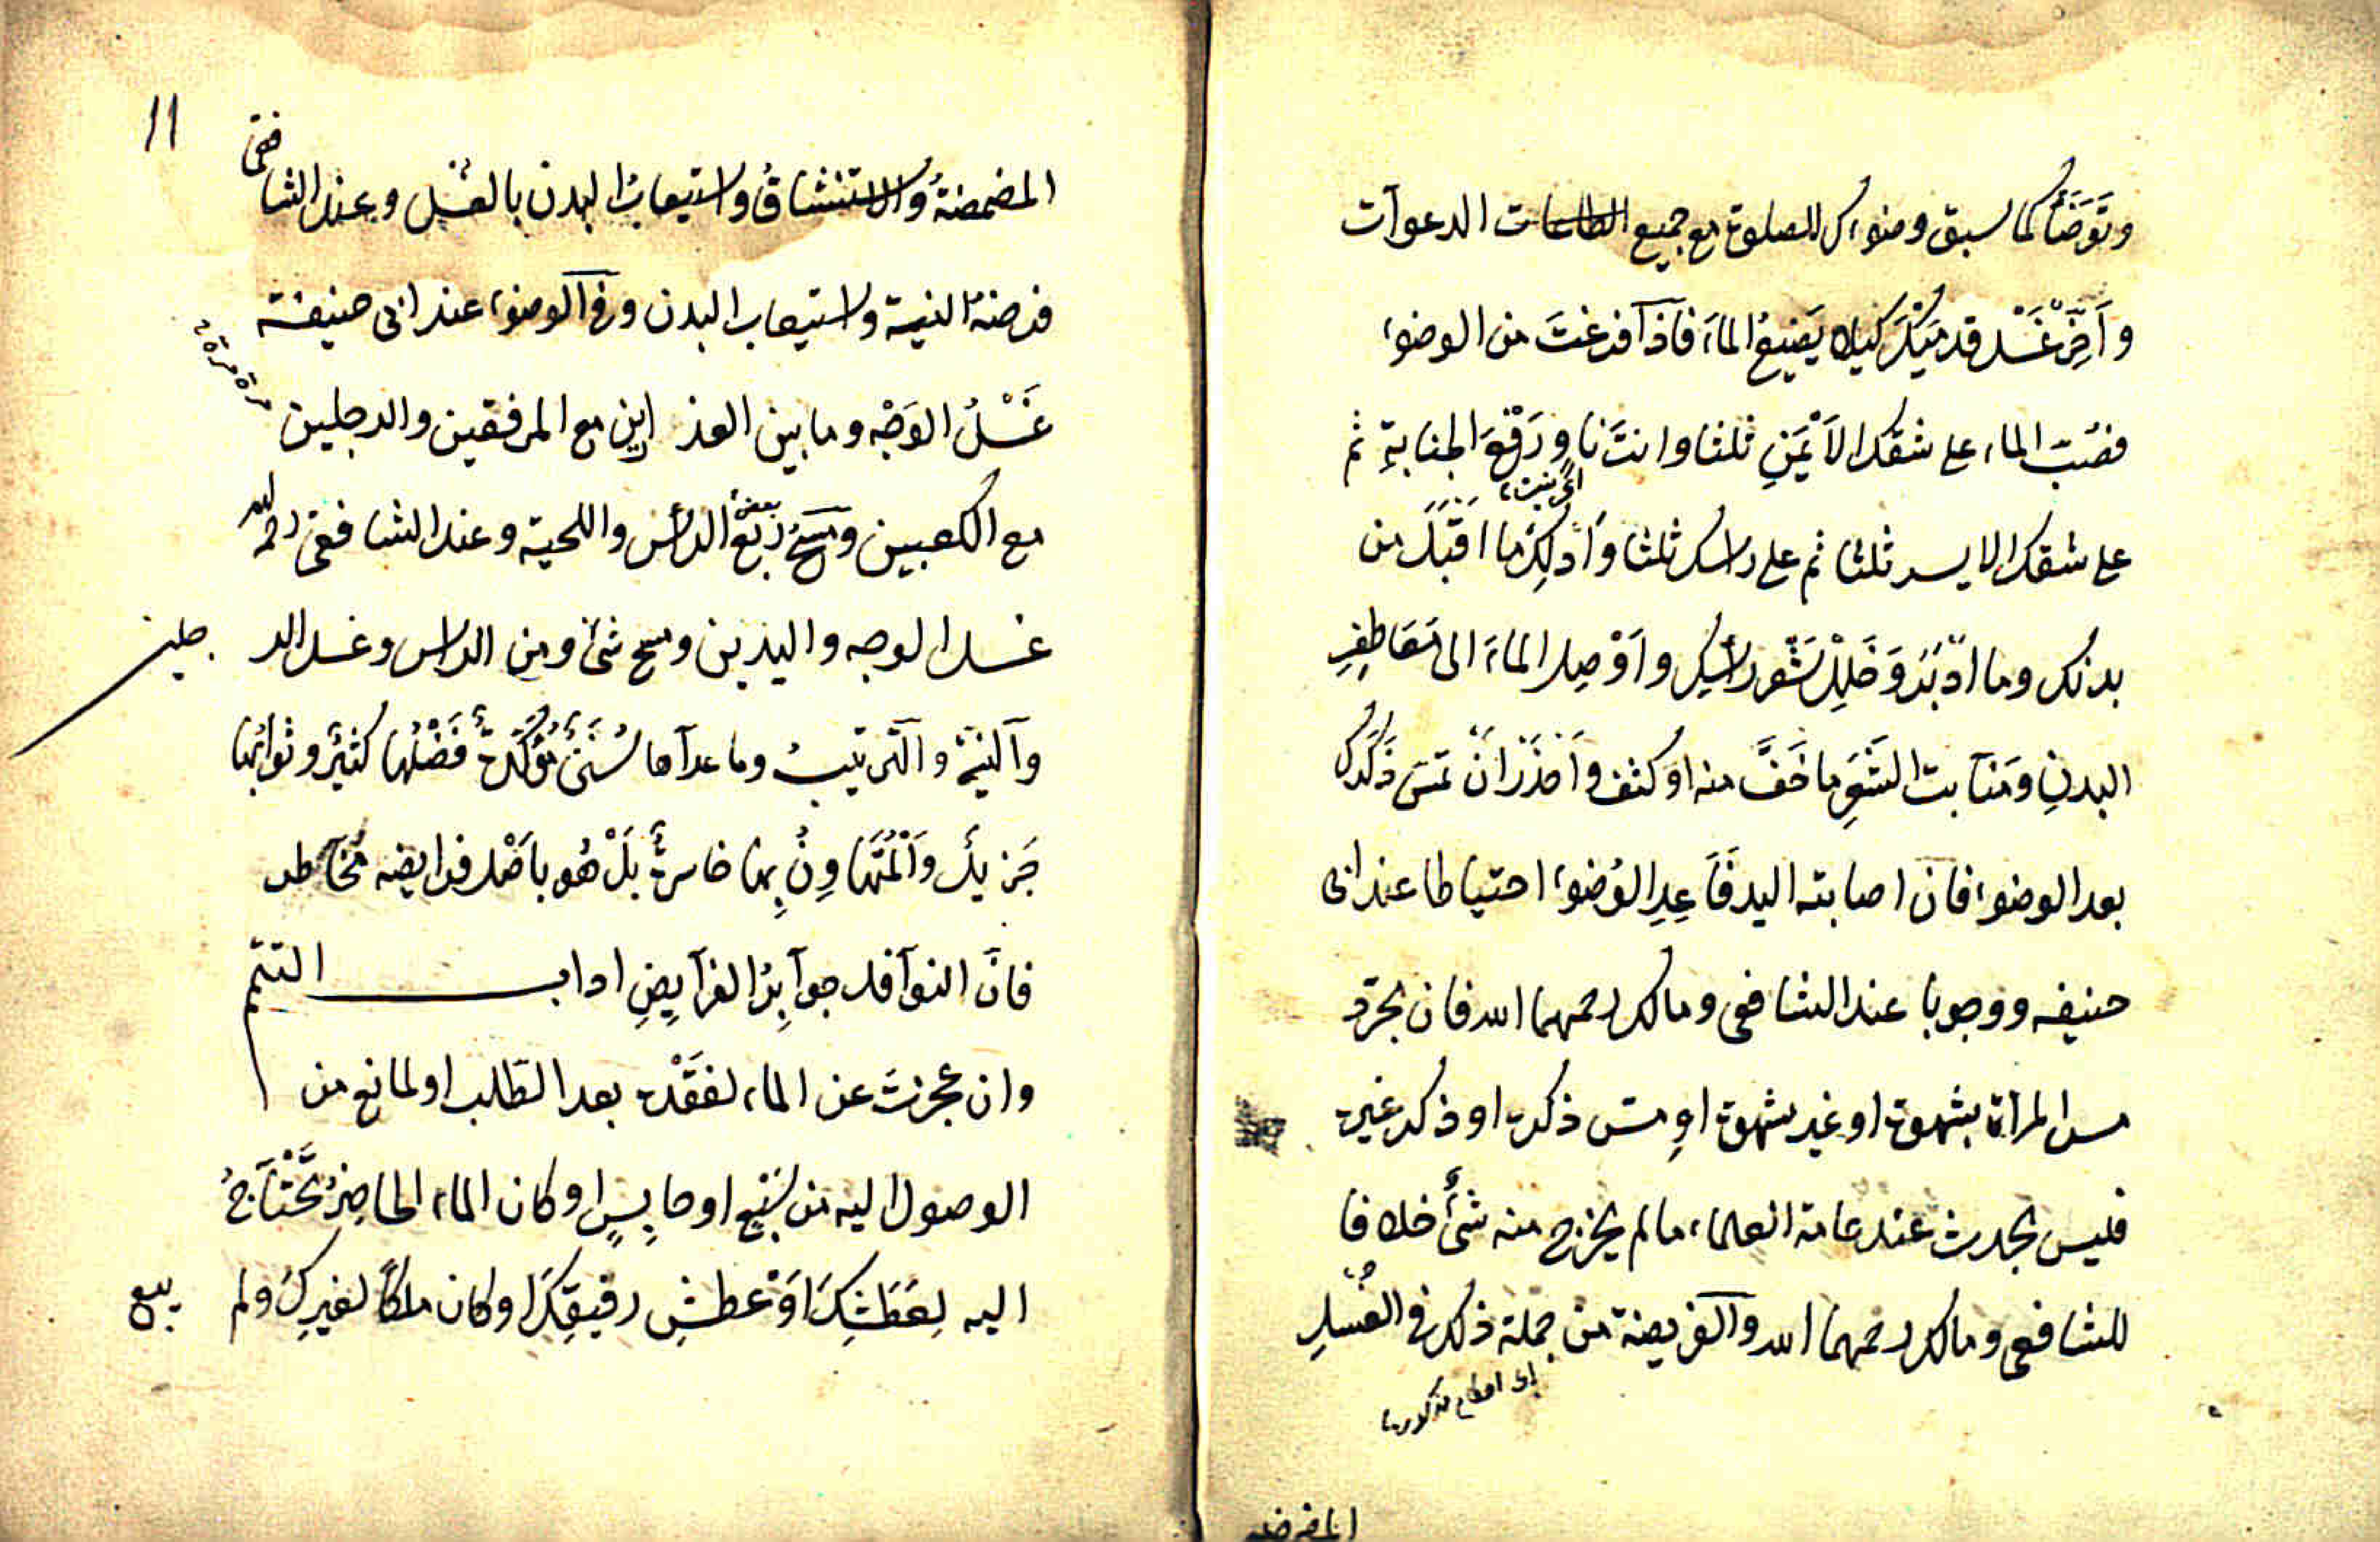 وتَوَضَّأ كما سبق وضوءك للصلوة مع جميع الدعوآت
وأَخِّرْ غَسْل قدميْكَ كيلا يضيعُ الماءَ فاذآ فرغتَ من الوضوء
فصُبّ الماء على شقك الأَيْمَنِ ثلثا وانتَ ناوٍ رَفْعَ الجنابةِ ثم
على شقك الايسر ثلثا ثم على راسك ثلثا وادلك ما اَقْبَلَ من
بدنك وما اَدْبَرَ وَخَلِّلْ شَعْر رأسِك واَوْصِل الماءَ الى مَعَاطِفِ
البدنِ ومَنآبت الشَعْرِ ما خَفَّ منه او كثف واحْذَرْ اَنْ تمسّ ذَكَرك
بعد الوضوء فان اصابته اليد فَاَعِدِ الوُضوء احتياطا عند ابى
حنيفه ووجوبا عند الشافعى ومالك رحمهما الله فان تجرّد
مس المرأة بشهوة او غير شهوة او مسّ ذكره او ذكر غيره
فليس بحدث عند عامة العلماء ما لم يخرج منه شئٌ خلافا
للشافعى ومالك رحمهما الله وآلفريضة من جملة ذلك فى الغُسلِ
المضمضة
11
المضمضةُ والاستنشاقُ واستيعابُ البدن بالغسل وعند الشافعى
فرضهُ النية واستيعاب البدن وفى آلوضوء عند ابى حنيفة
غَسْلُ الوَجْه وما بين العذارين مع المرفقين والرجلين
مرة مرة
مع الكعبين ومسحُ رُبْعِ الرأس واللحية وعند الشافعى رحمه الله
غسل الوجه واليدين ومسح شئ من الراس وغسل الرجلين
وآلنيةُ وآلترتيبُ وما عدآها سُنَنٌ مُؤَكَّدَةٌ فَضْلُها كثيرٌ وثوابُها
جَزيلٌ وَالْمُتَهَاوِنُ بِها خاسرٌ بَلْ هُو باَصْل فرايضه مُخَاطر
فانَّ النوآفل جوآبِرُ الفرآيضِ ادابــــ التيمم
وان عجزتَ عن الماء لفَقْدِه بعد الطلب او لمانع من
الوصول اليه من سَبُعٍ او حابِسٍ او كان الماء الحاضِرُ تَحْتَاجُ
اليه لِعَطَشِكَ اَوْ عطشِ رفيقِكَ او كان ملكًا لغيرك ولم يبع